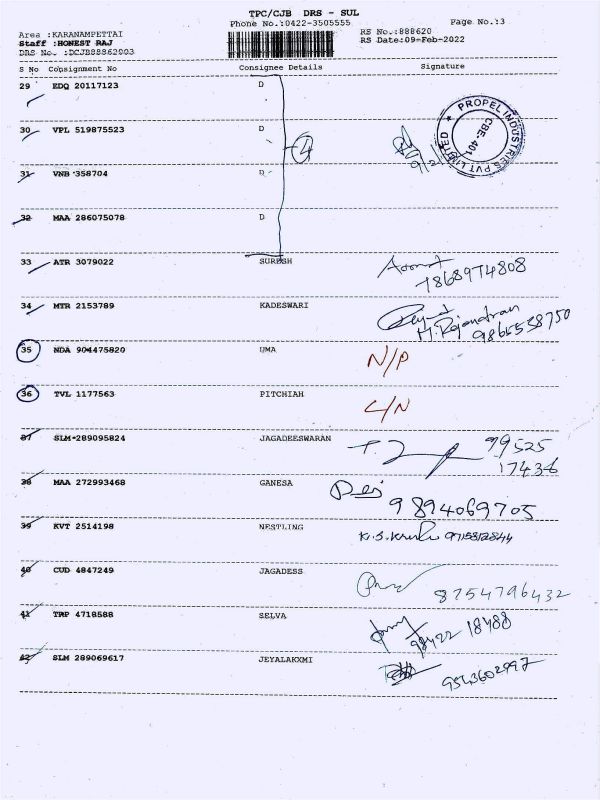 TPC/CJB DRS - SUL
Phone No.:0422-3505555
Page No.:3
Area :KARANAMPETTAI
RS No.:888620
Staff :HONEST RAJ
RS Date:09-Feb-2022
DRS No. :DCJB88862003
S No Consignment No Consignee Details Signature
29 EDQ 20117123 D
30 VPL 519875523 D
4
9/2/
PROPEL INDUSTRIES PVT LIMITED
CBE-401
31 VNB 358704 D
32 MAA 286075078 D
33 ATR 3079022 SURESH
7868974808
34 MTR 2153789 KADESWARI
M. Rajendran
9865538750
35 NDA 904475820 UMA N/P
36 TVL 1177563 PITCHIAH L/N
37 SLM 289095824 JAGADEESWARAN
99525
17436
38 MAA 272993468 GANESA
9894069705
39 KVT 2514198 NESTLING
40 CUD 4847249 JAGADESS
8754796432
41 TMP 4718588 SELVA
98422 18488
42 SLM 289069617 JEYALAKXMI
9543602997